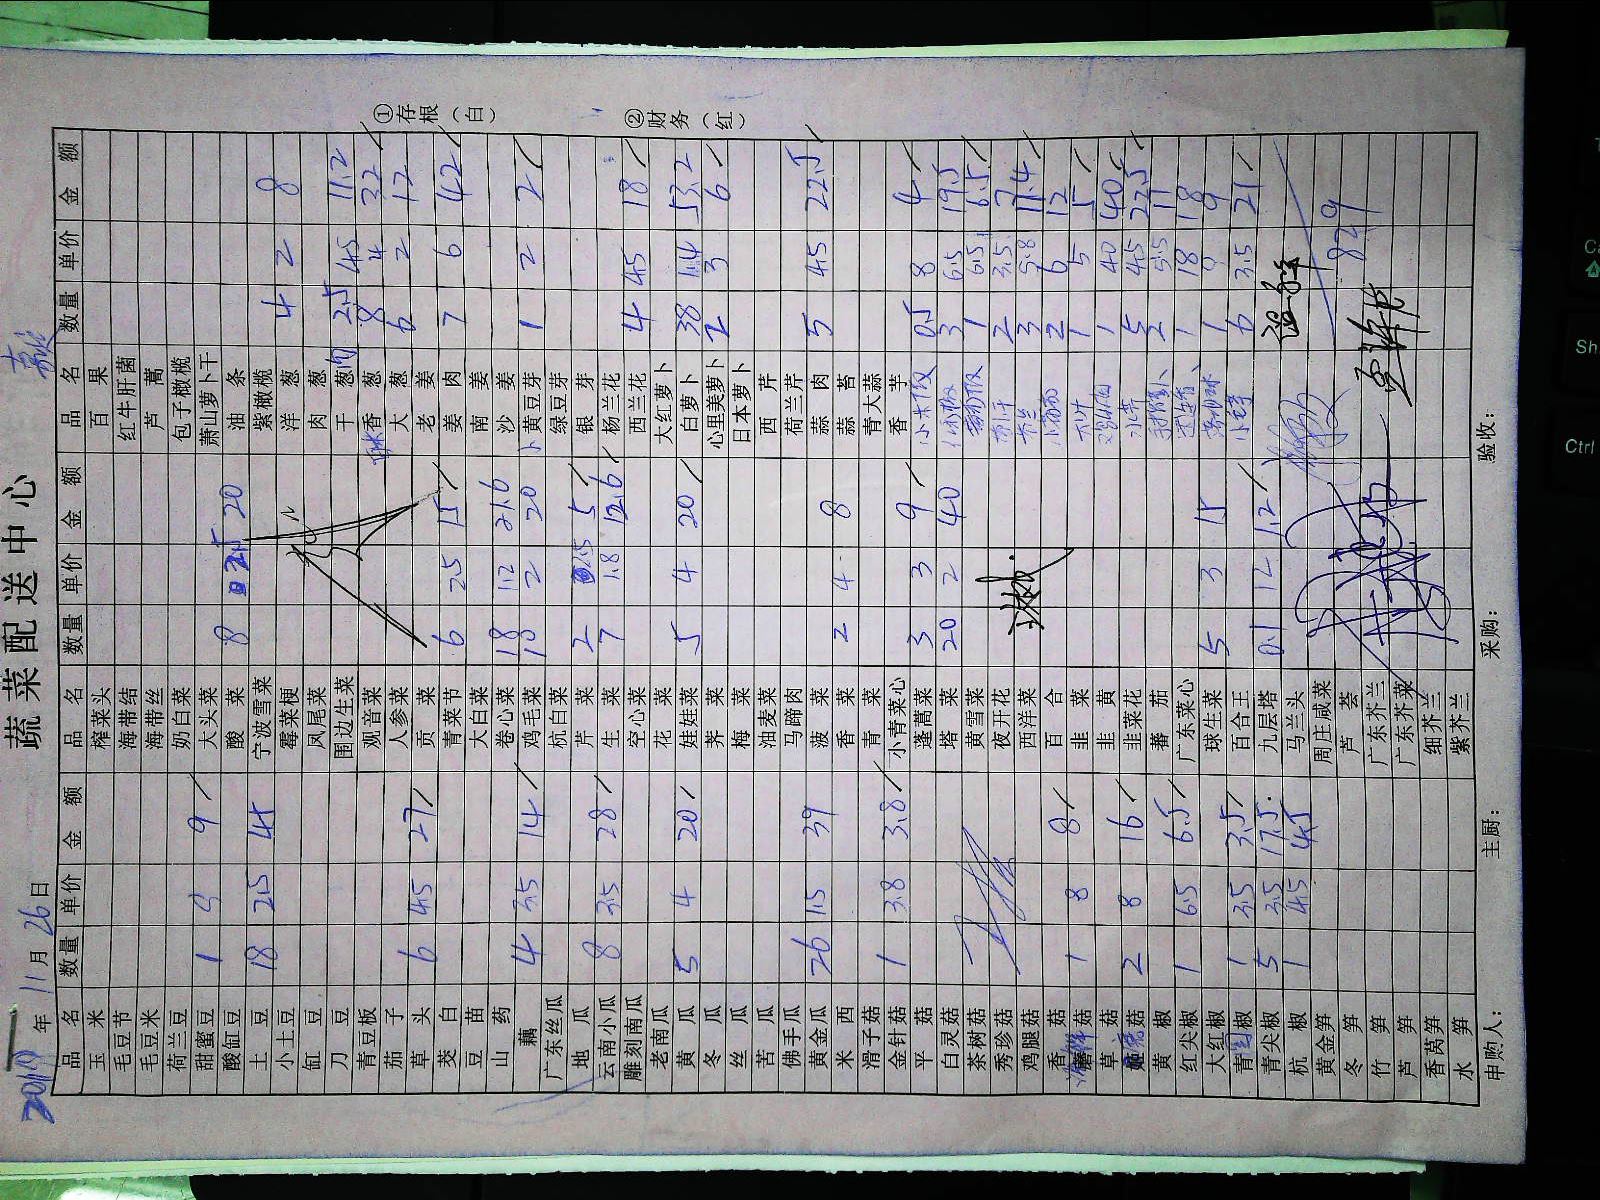 蔬菜配送中心
2019年11月26日
品名 数量 单价 金额 品名 数量 单价 金额 品名 数量 单价 金额
玉米 榨菜头 百果
毛豆节 海带结 红牛肝菌
毛豆米 海带丝 芦蒿
荷兰豆 奶白菜 包子橄榄
甜蜜豆 1 9 9 大头菜 萧山萝卜干
酸缸豆 酸菜 8 2.5 20 油条
土豆 18 2.5 45 宁波雪菜 紫橄榄
小土豆 霉菜梗 洋葱 4 2 8
缸豆 凤尾菜 肉葱
刀豆 围边生菜 干葱肉 2.5 4.5 11.2
青豆板 观音菜 香葱 8 4 32
茄子 人参菜 大葱 6 2 12
草头 6 4.5 27 贡菜 老姜
茭白 青菜节 6 2.5 15 姜肉 7 6 42
豆苗 大白菜 南姜
山药 卷心菜 18 1.2 21.6 沙姜
藕 4 3.5 14 鸡毛菜 10 2 20 黄豆芽 1 2 2
广东丝瓜 杭白菜 绿豆芽
地瓜 芹菜 2 2.5 5 银芽
云南小瓜 8 3.5 28 生菜 7 1.8 12.6 杨兰花
雕刻南瓜 空心菜 西兰花 4 4.5 18
老南瓜 花菜 大红萝卜
黄瓜 5 4 20 娃娃菜 5 4 20 白萝卜 38 1.4 53.2
冬瓜 荠菜 心里美萝卜 2 3 6
丝瓜 梅菜 日本萝卜
苦瓜 油麦菜 西芹
佛手瓜 马蹄肉 荷兰芹
黄金瓜 26 1.5 39 波菜 蒜肉 5 4.5 22.5
米西 香菜 2 4 8 蒜苔
滑子菇 青菜 青大蒜
金针菇 1 3.8 3.8 小青菜心 香芋
平菇 蓬蒿菜 3 3 9 小米椒 0.5 8 4
白灵菇 塔菜 20 2 40 3 6.5 19.5
茶树菇 黄雪菜 1 6.5 6.5
秀珍菇 夜开花 2 3.5 7
鸡腿菇 西洋菜 3 3.8 11.4
香菇 百合 2 6 12
菇 1 8 8 韭菜 1 5 5
草菇 韭黄 1 40 40
菇 2 8 16 韭菜花 5 4.5 22.5
黄椒 番茄 2 5.5 11
红尖椒 1 6.5 6.5 广东菜心 1 18 18
大红椒 球生菜 5 3 15 1 9 9
青圆椒 1 3.5 3.5 百合王 6 3.5 21
青尖椒 5 3.5 17.5 九层塔 0.1 12 1.2
杭椒 1 4.5 4.5 马兰头
黄金笋 周庄咸菜
冬笋 芦荟 829
竹笋 广东芥兰
芦笋 广东芥菜
香莴笋 细芥兰
水笋 紫芥兰
申购人： 主厨： 采购： 验收：
①存根（白）
②财务（红）